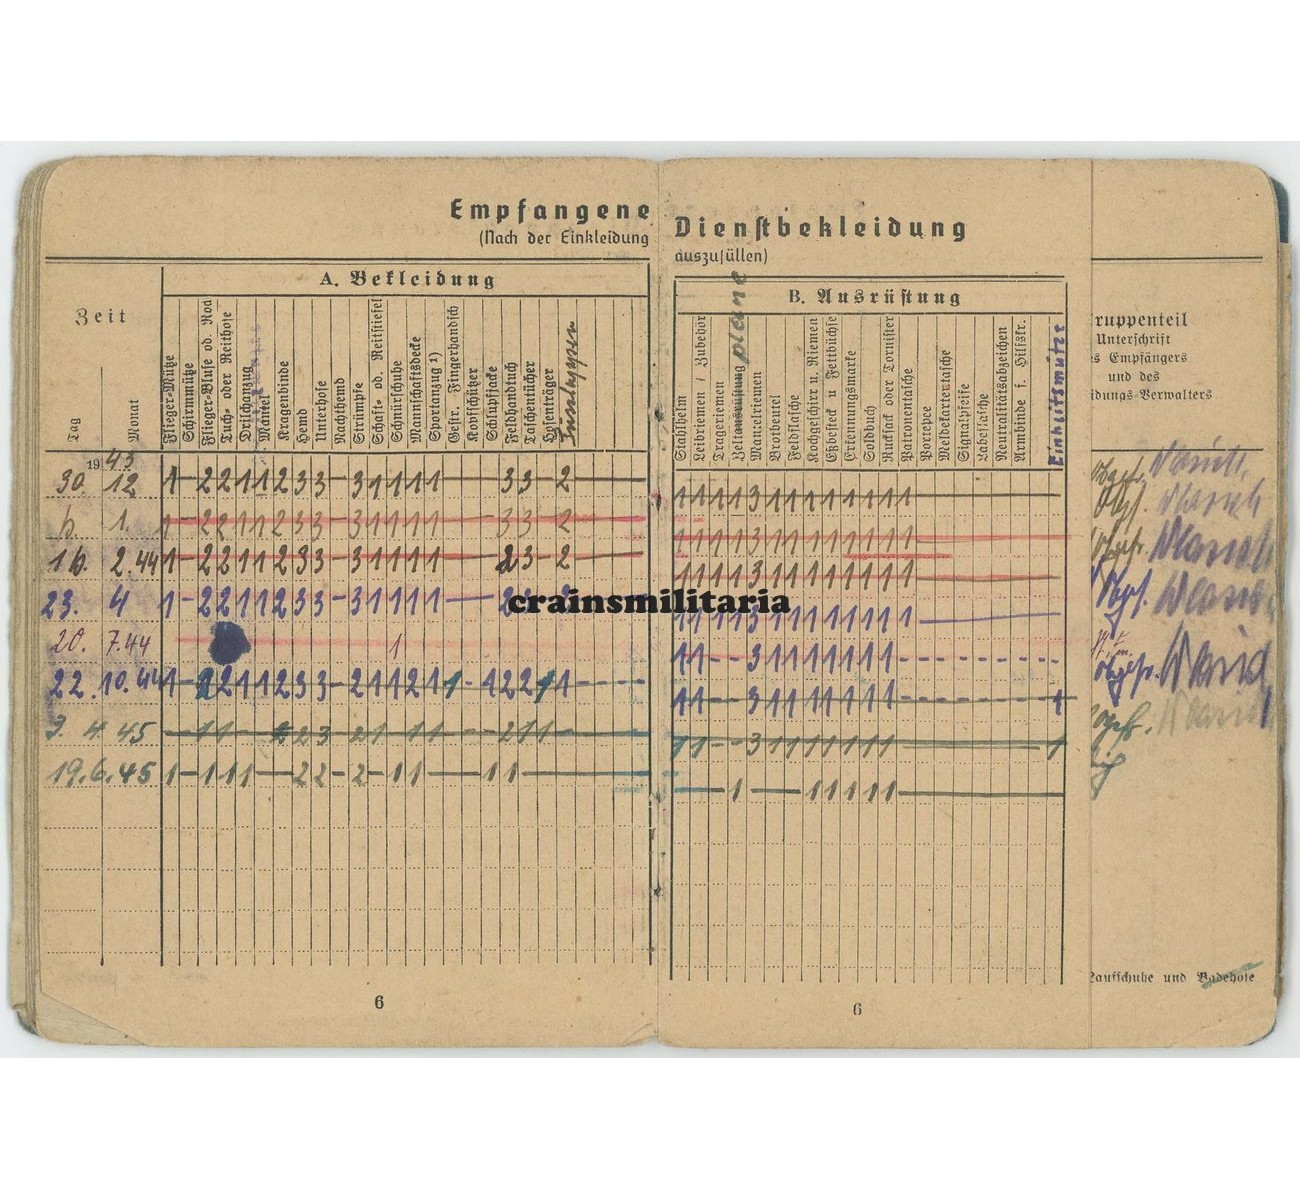 Empfangene Dienstbekleidung
(Nach der Einkleidung auszufüllen)
A. Bekleidung
B. Ausrüstung
Zeit
Tag
Monat
Flieger-Mütze
Schirmmütze
Flieger-Bluse od. Rock
Tuch- oder Reithose
Drillchanzug
Mantel
Kragenbinde
Hemd
Unterhose
Nachthemd
Strümpfe
Schaft- od. Reitstiefel
Schnürschuhe
Mannschaftsdecke
Sportanzug 1)
Gestr. Fingerhandsch
Kopfschützer
Schlupfjacke
Feldhandtuch
Taschentücher
Hosenträger
Fusslappen
Stahlhelm
Leibriemen / Zubehör
Trageriemen
Zeltausrüstung plane
Mantelriemen
Brotbeutel
Feldflasche
Kochgeschirr u. Riemen
Eßbesteck u Fettbüchse
Erkennungsmarke
Soldbuch
Rucksack oder Tornister
Patronentasche
Portepee
Meldekartentasche
Signalpfeife
Labeflasche
Neutralitätsabzeichen
Armbinde f. Hilfskr.
Einheitsmütze
ruppenteil
Unterschrift
s Empfängers
und des
idungs-Verwalters
1943
30. 12 1 - 2 2 1 1 2 3 3 - 3 1 1 1 1 - 3 3 - 2 - 1 1 1 1 3 1 1 1 1 1 1 1 1 -
1. 1 - 2 2 1 1 2 3 3 - 3 1 1 1 1 - 3 3 - 2 - 1 1 1 1 3 1 1 1 1 1 1 1 1 -
16. 2.44 1 - 2 2 1 1 2 3 3 - 3 1 1 1 1 - 2 3 - 2 - 1 1 1 1 3 1 1 1 1 1 1 1 1 -
23. 4 1 - 2 2 1 1 2 3 3 - 3 1 1 1 1 - 1 1 1 1 3 1 1 1 1 1 1 1 1 -
20. 7.44 1 1 1 - - 3 1 1 1 1 1 1 1 -
22. 10.44 1 - 2 2 1 1 2 3 3 - 2 1 1 2 1 1 - 1 2 2 1 1 - 1 1 - - 3 1 1 1 1 1 1 1 - 1
3. 4. 45 - 1 1 - 2 2 3 - 2 1 - 1 1 - 2 1 1 - 1 1 - - 3 1 1 1 1 1 1 1 - 1
19. 6. 45 1 - 1 1 1 - 2 2 - 2 - 1 1 - 1 1 - 1 - 1 1 1 1 1 -
crainsmilitaria
Laufschuhe und Badehose
6
6